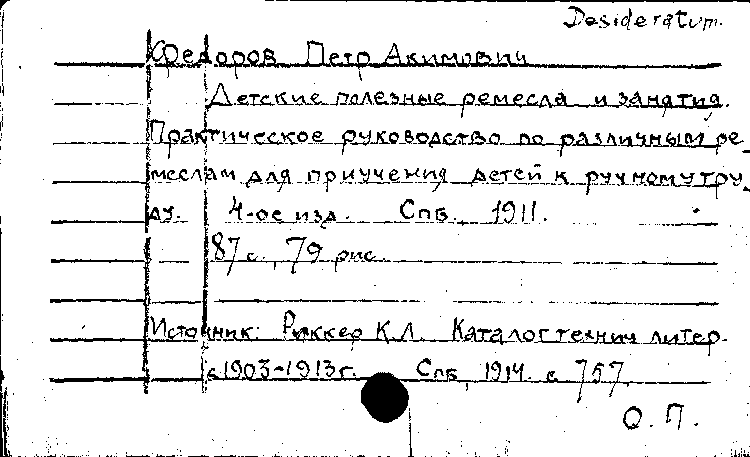 Desideratum.
Федоров Петр Акимович
Детские полезные ремесла и занятия.
Практическое руководство по различным ре-
меслам для приучения детей к ручному тру-
ду. 4-ое изд. Спб., 1911.
87 с., 79 рис.
Источник: Риккер К.Л. Каталог технич литер.
с 1903-1913 г. Спб, 1914. с 757.
О. П.